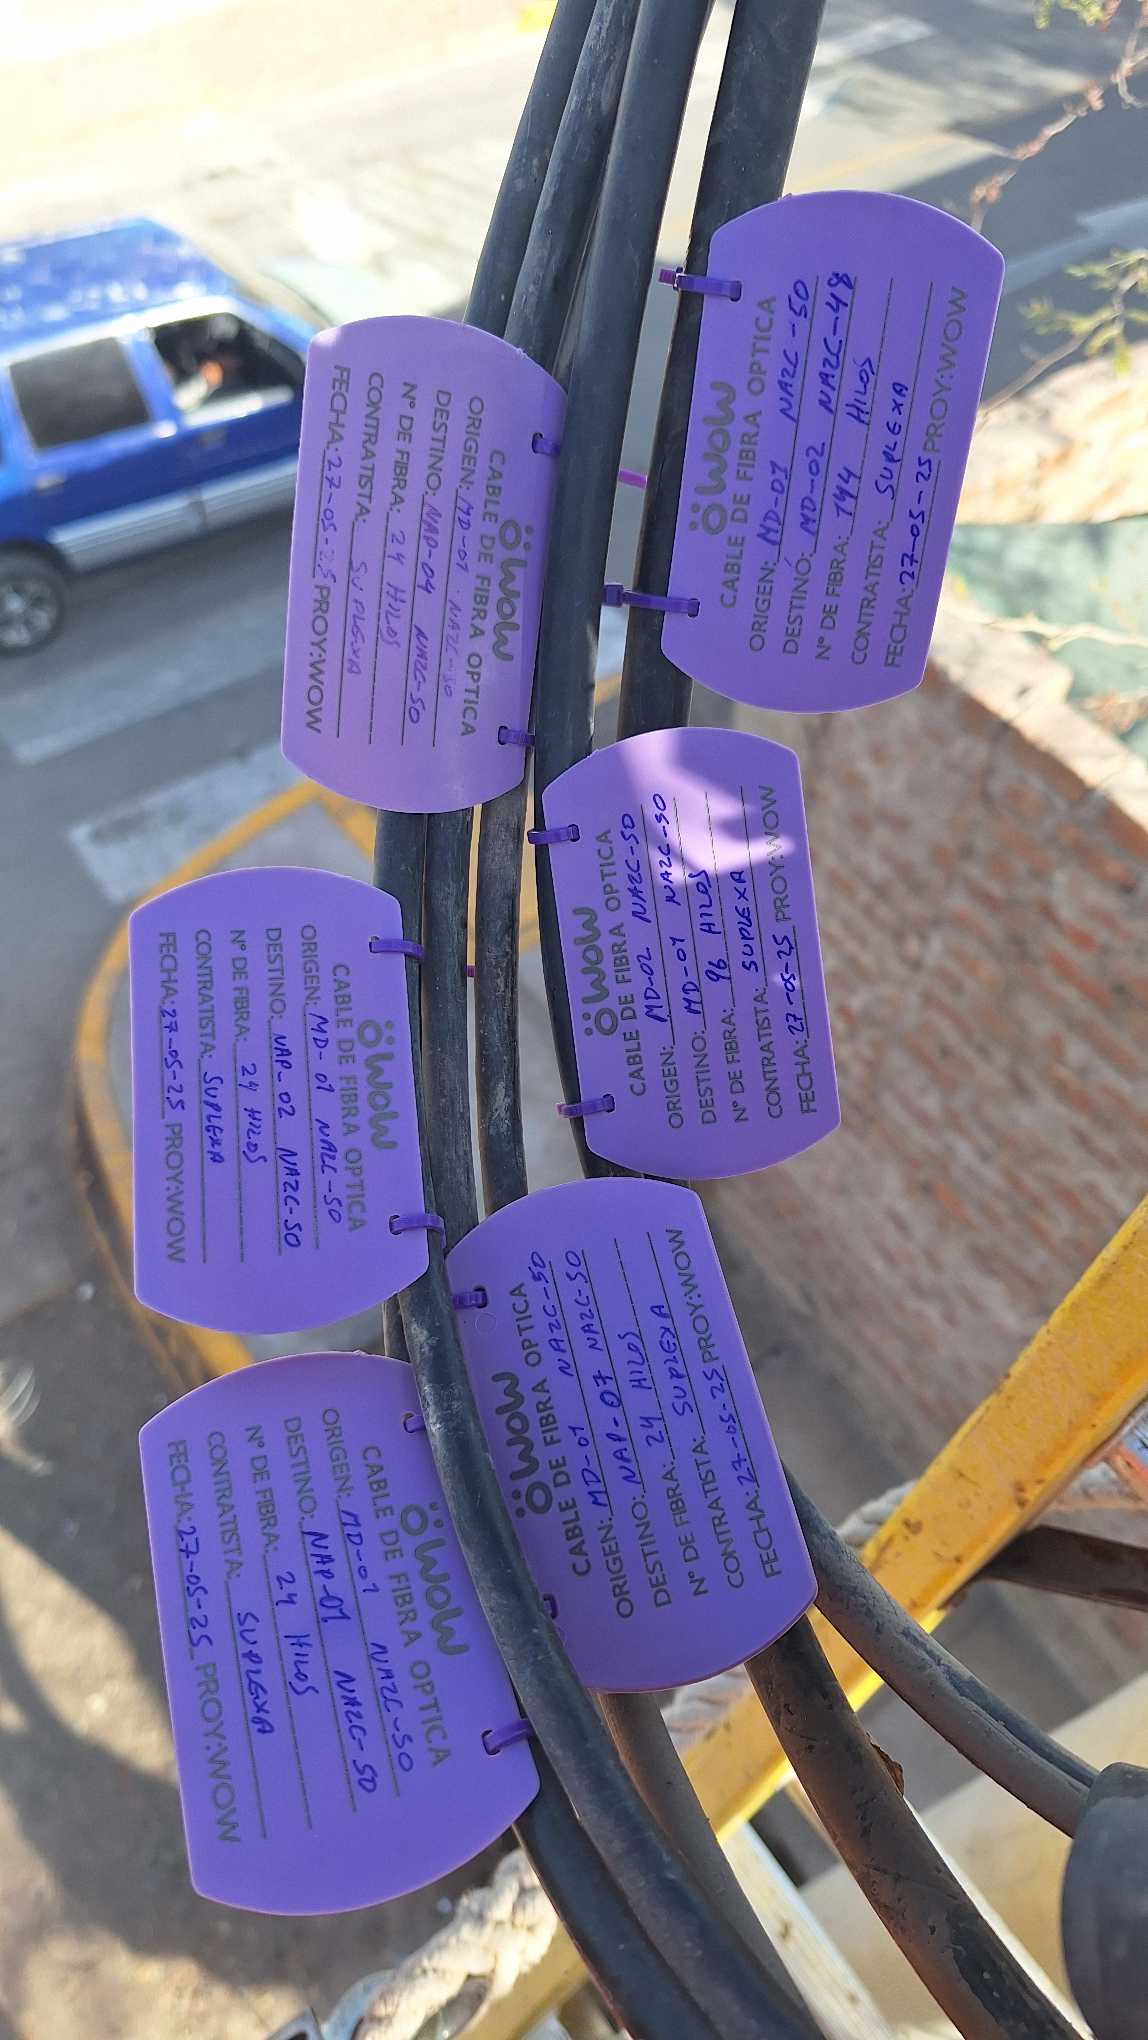 WOW
CABLE DE FIBRA OPTICA
ORIGEN: MD-01 NAZC-50
DESTINO: MD-02 NAZC-48
N° DE FIBRA: 144 HILOS
CONTRATISTA: SUPLEXA
FECHA: 27-05-25 PROY:WOW
WOW
CABLE DE FIBRA OPTICA
ORIGEN: MD-01 NAZC-50
DESTINO: NAP-04 NAZC-50
N° DE FIBRA: 24 HILOS
CONTRATISTA: SUPLEXA
FECHA: 27-05-25 PROY:WOW
WOW
CABLE DE FIBRA OPTICA
ORIGEN: MD-02 NAZC-50
DESTINO: MD-01 NAZC-50
N° DE FIBRA: 96 HILOS
CONTRATISTA: SUPLEXA
FECHA: 27-05-25 PROY:WOW
WOW
CABLE DE FIBRA OPTICA
ORIGEN: MD-01 NAZC-50
DESTINO: NAP-02 NAZC-50
N° DE FIBRA: 24 HILOS
CONTRATISTA: SUPLEXA
FECHA: 27-05-25 PROY:WOW
WOW
CABLE DE FIBRA OPTICA
ORIGEN: MD-01 NAZC-50
DESTINO: NAP-07 NAZC-50
N° DE FIBRA: 24 HILOS
CONTRATISTA: SUPLEXA
FECHA: 27-05-25 PROY:WOW
WOW
CABLE DE FIBRA OPTICA
ORIGEN: MD-01 NAZC-50
DESTINO: NAP-01 NAZC-50
N° DE FIBRA: 24 HILOS
CONTRATISTA: SUPLEXA
FECHA: 27-05-25 PROY:WOW